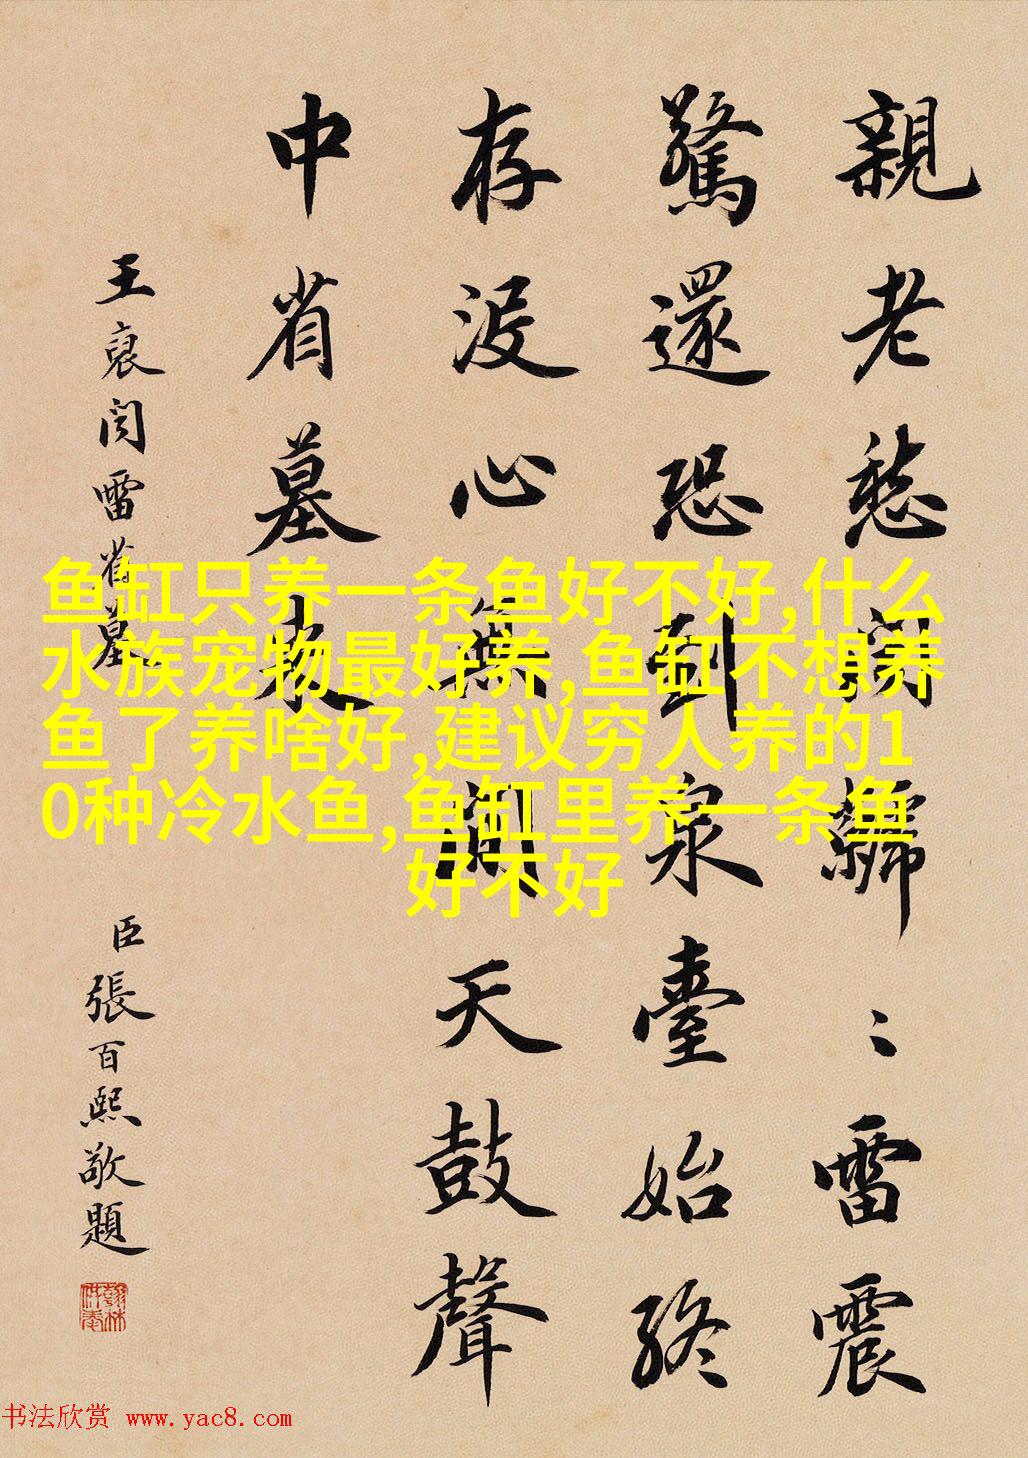 親老愁聞〻雷震
驚還恐到泉臺始終
存没心無間天鼓聲
中省墓来
王裒聞雷省墓
臣張百熙敬題
翰林
供奉
鱼缸只养一条鱼好不好,什么
水族宠物最好养,鱼缸不想养
鱼了养啥好,建议穷人养的1
0种冷水鱼,鱼缸里养一条鱼
好不好
书法欣赏 www.yac8.com